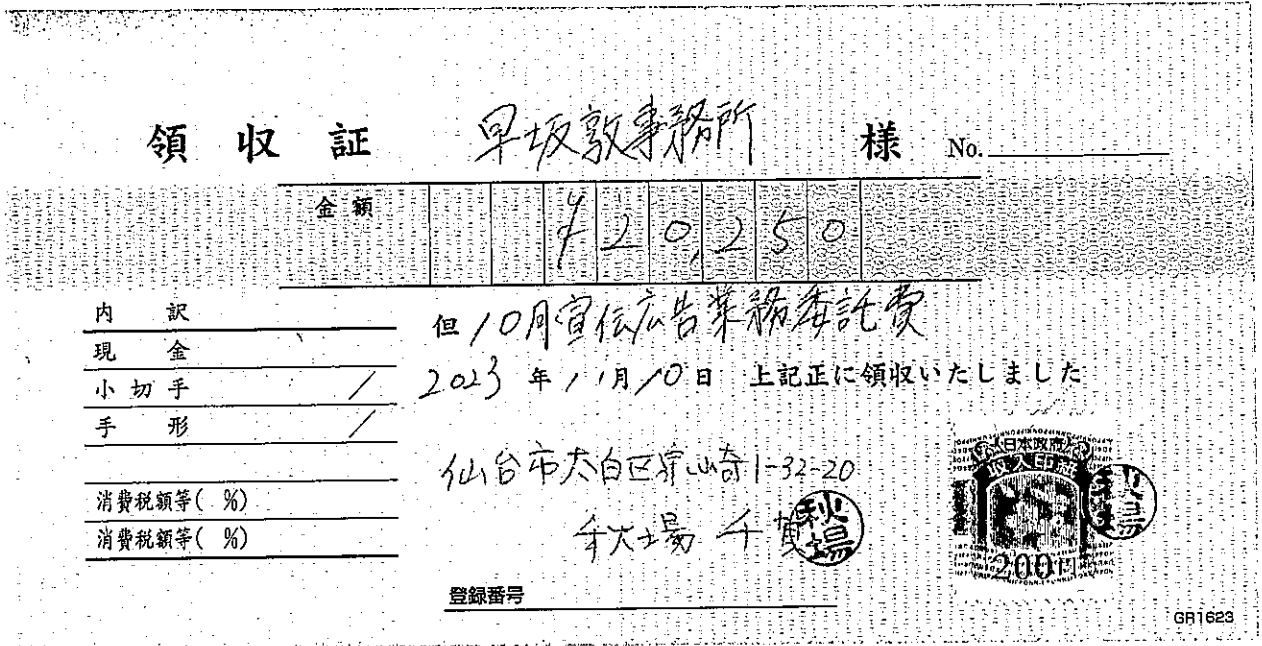 領収証 早坂敦事務所 様 No.
金額 ¥20,250
内訳
現金
小切手 /
手形 /
消費税額等( %)
消費税額等( %)
但 10月宣伝広告業務委託費
2023年11月10日 上記正に領収いたしました
仙台市太白区 1-32-20
秋場 千賀 秋場
登録番号
日本政府
収入印紙
200円
秋場
GR1623